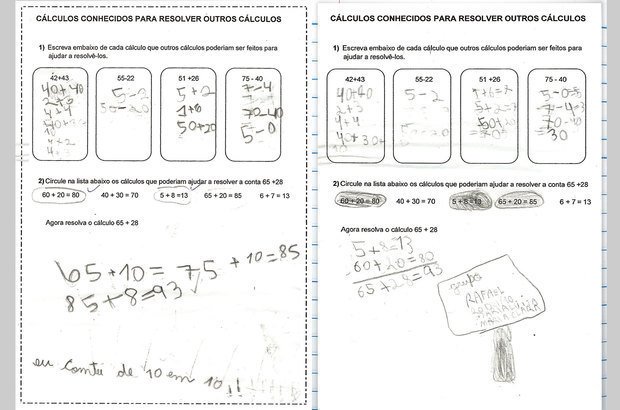 CÁLCULOS CONHECIDOS PARA RESOLVER OUTROS CÁLCULOS
1) Escreva embaixo de cada cálculo que outros cálculos poderiam ser feitos para
ajudar a resolvê-los.
42+43 55-22 51 +26 75 - 40
40+40 5-2 5+2 7-4
1+6 72-40
50+20 5-0
4+2
2) Circule na lista abaixo os cálculos que poderiam ajudar a resolver a conta 65 +28
60 + 20 = 80 40 + 30 = 70 5 + 8 =13 65 + 20 = 85 6 + 7 = 13
Agora resolva o cálculo 65 + 28
65+10= 75 +10=85
85+8=93
eu contei de 10 em 10
CÁLCULOS CONHECIDOS PARA RESOLVER OUTROS CÁLCULOS
1) Escreva embaixo de cada cálculo que outros cálculos poderiam ser feitos para
ajudar a resolvê-los.
42+43 55-22 51 +26 75 - 40
40+40 5-2 1+6=7 5-0=5
2+3 5+2=7 7-4=3
4+4 50+20 70-40
40+30 =70= =30
2) Circule na lista abaixo os cálculos que poderiam ajudar a resolver a conta 65 +28
60 + 20 = 80 40 + 30 = 70 5 + 8 =13 65 + 20 = 85 6 + 7 = 13
Agora resolva o cálculo 65 + 28
5+8=13
60+20=80
65+28=93
grupo
RAFAEL
CLARA